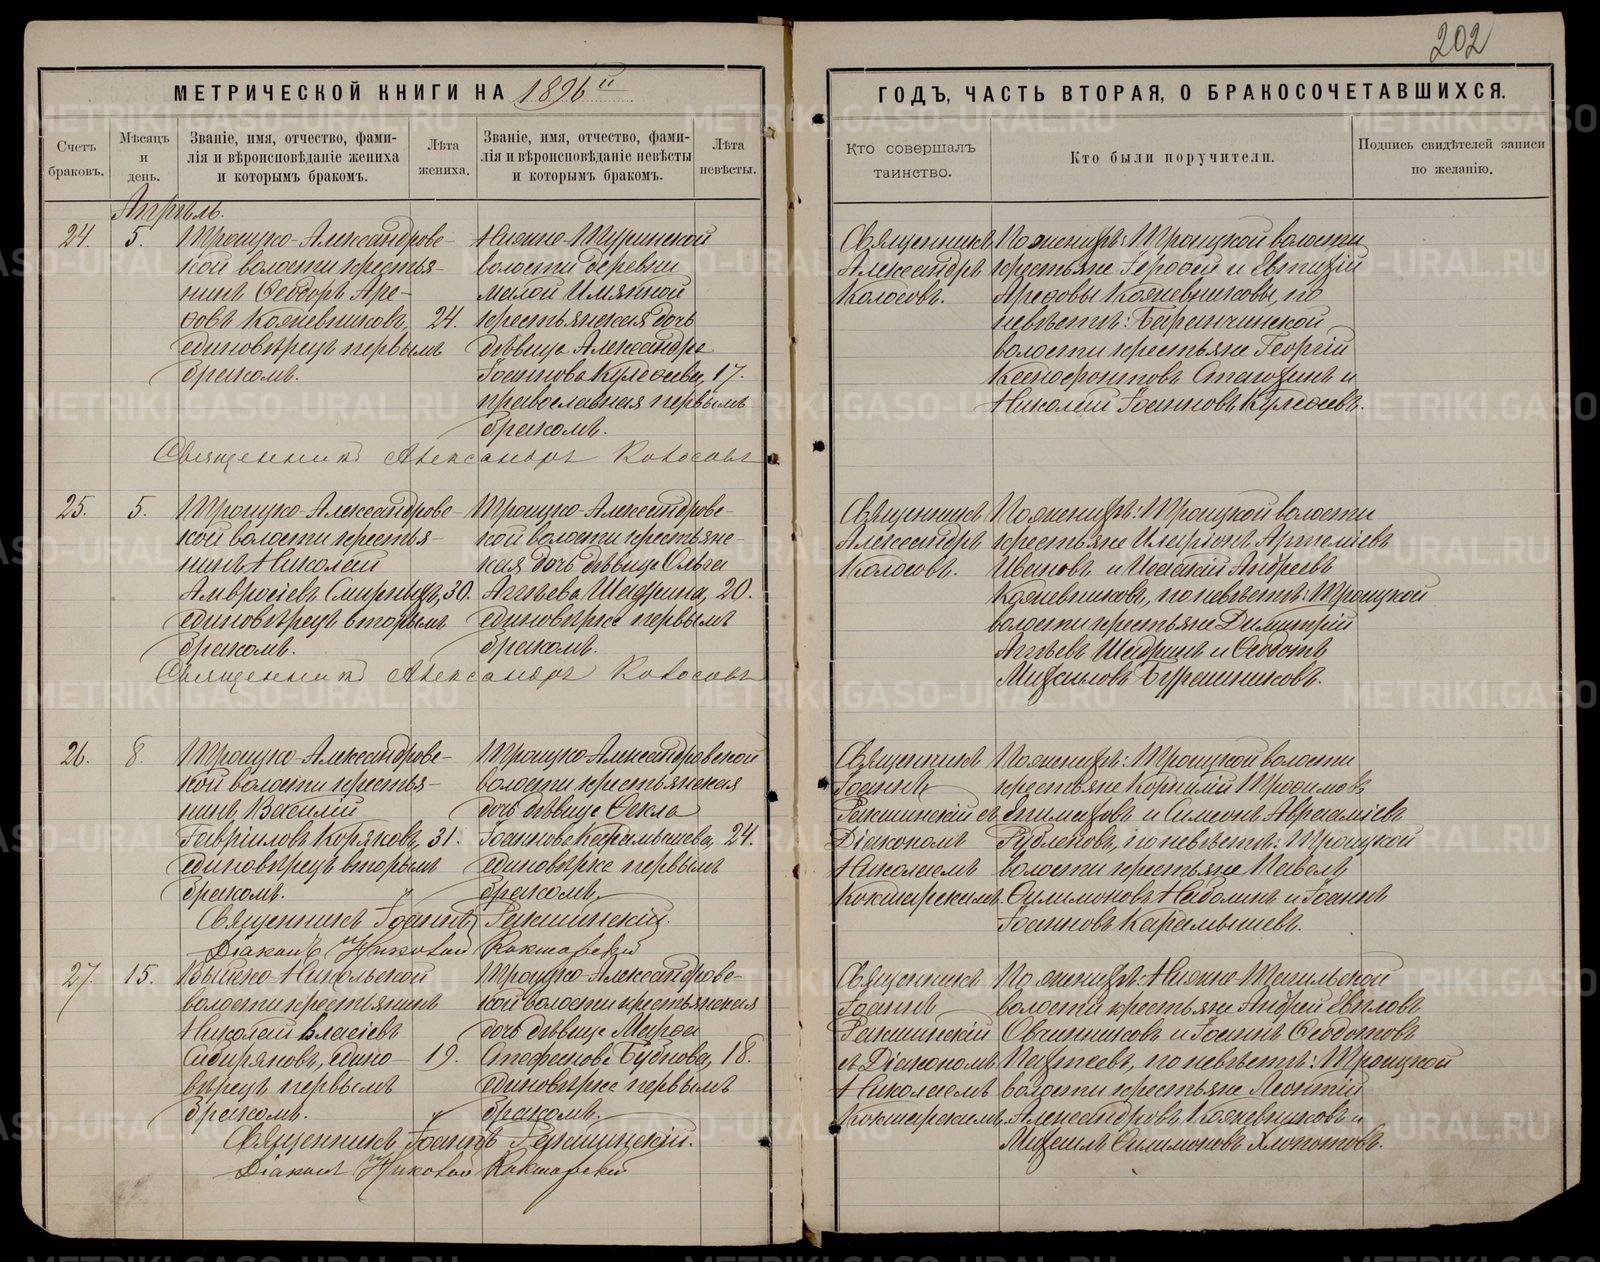 202
МЕТРИЧЕСКОЙ КНИГИ НА 1896й
ГОДЪ, ЧАСТЬ ВТОРАЯ, О БРАКОСОЧЕТАВШИХСЯ.
Счетъ
браковъ.
Мѣсяцъ
и
день.
Званіе, имя, отчество, фами-
лія и вѣроисповѣданіе жениха
и которымъ бракомъ.
Лѣта
жениха.
Званіе, имя, отчество, фами-
лія и вѣроисповѣданіе невѣсты
и которымъ бракомъ.
Лѣта
невѣсты.
Кто совершалъ
таинство.
Кто были поручители.
Подпись свидѣтелей записи
по желанію.
Апрѣль.
24.
5.
Троицко-Александровс-
кой волости крестья-
нинъ Ѳеодоръ Аре-
ѳовъ Кожевниковъ,
единовѣрецъ первымъ
бракомъ.
24.
Нижне-Туринской
волости деревни
Малой Именной
крестьянская дочь
дѣвица Александра
Іоаннова Кулѳаева,
православная первымъ
бракомъ.
17.
Священникъ
Александръ
Колосовъ.
По женихѣ: Троицкой волости
крестьяне Героѳей и Евтихій
Ареѳовы Кожевниковы, по
невѣстѣ: Баранчинской
волости крестьяне Георгій
Ксенофонтовъ Стахинъ и
Николай Іоанновъ Кулѳаевъ.
Священникъ Александръ Колосовъ
25.
5.
Троицко-Александровс-
кой волости крестья-
нинъ Николай
Амвросіевъ Смирныхъ,
единовѣрецъ вторымъ
бракомъ.
30.
Троицко-Александровс-
кой волости крестьянс-
кая дочь дѣвица Ольга
Аггѣева Шадрина,
единовѣрка первымъ
бракомъ.
20.
Священникъ
Александръ
Колосовъ.
По женихѣ: Троицкой волости
крестьяне Иларіонъ Артеміевъ
Ивановъ и Исаакій Андреевъ
Кожевниковъ, по невѣстѣ: Троицкой
волости крестьяне Димитрій
Аггѣевъ Шадринъ и Ѳеодотъ
Михаиловъ Бурашниковъ.
Священникъ Александръ Колосовъ
26.
8.
Троицко-Александровс-
кой волости крестья-
нинъ Василій
Гавріиловъ Коряковъ,
единовѣрецъ вторымъ
бракомъ.
31.
Троицко-Александровской
волости крестьянская
дочь дѣвица Ѳекла
Іоаннова Карамышева,
единовѣрка первымъ
бракомъ.
24.
Священникъ
Іоаннъ
Ракшинскій съ
Діакономъ
Николаемъ
Кокшарскимъ.
По женихѣ: Троицкой волости
крестьяне Корнилій Трофимовъ
Епимаховъ и Симеонъ Авраамiевъ
Рублевъ, по невѣстѣ: Троицкой
волости крестьяне Павелъ
Филимоновъ Наболинъ и Іоаннъ
Іоанновъ Карамышевъ.
Священникъ Іоаннъ Ракшинскій.
Діаконъ Николай Кокшарскій
27.
15.
Выйско-Никольской
волости крестьянинъ
Николай Власіевъ
Сибиряковъ, едино-
вѣрецъ первымъ
бракомъ.
19.
Троицко-Александровс-
кой волости крестьянская
дочь дѣвица Марѳа
Стефанова Бубнова,
единовѣрка первымъ
бракомъ.
18.
Священникъ
Іоаннъ
Ракшинскій
съ Діакономъ
Николаемъ
Кокшарскимъ.
По женихѣ: Нижне-Тагильской
волости крестьяне Андрей Евиловъ
Овчинниковъ и Іоаннъ Ѳеодотовъ
Пахтеевъ, по невѣстѣ: Троицкой
волости крестьяне Леонтій
Александровъ Кожевниковъ и
Михаилъ Филимоновъ Хлопотовъ.
Священникъ Іоаннъ Ракшинскій.
Діаконъ Николай Кокшарскій